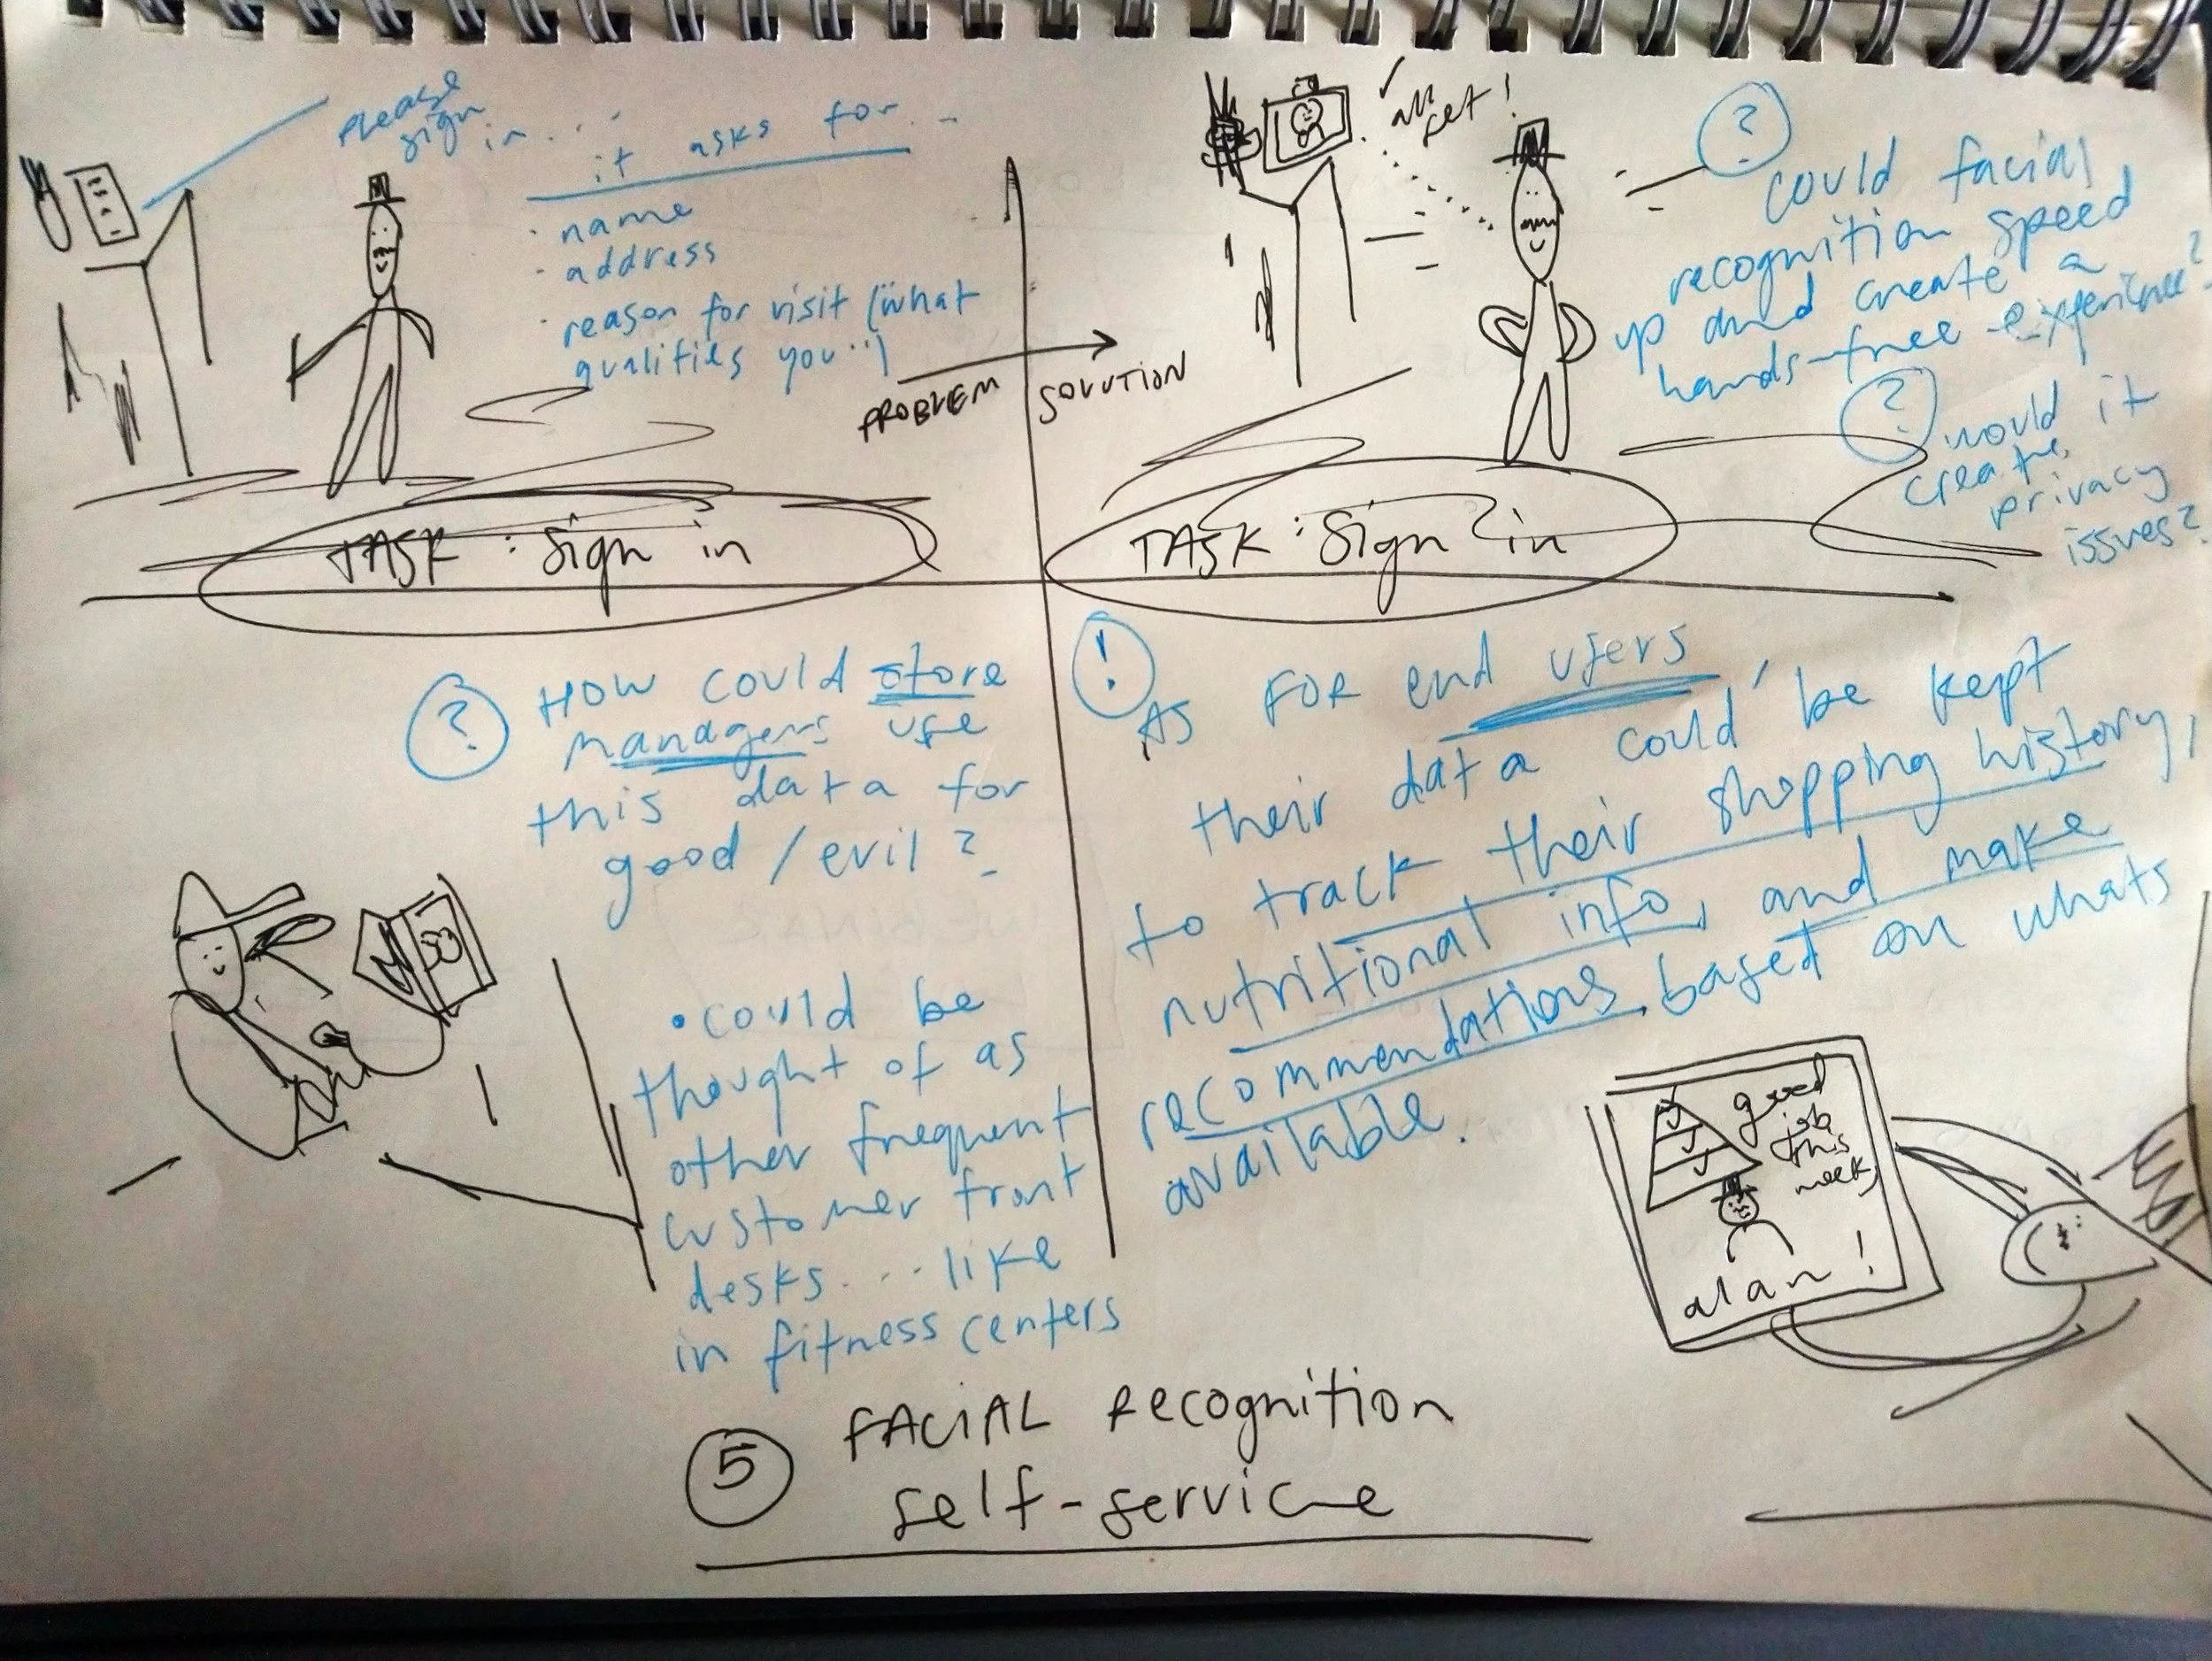 please
sign
in...
it asks for...
· name
· address
· reason for visit (what
qualifies you..)
PROBLEM
SOLUTION
✓ all
set!
?
could facial
recognition speed
up and create a
hands-free experience?
?
would it
create
privacy
issues?
TASK: Sign in
TASK: Sign in
?
HOW could store
managers use
this data for
good / evil?
• could be
thought of as
other frequent
customer front
desks.... like
in fitness centers
!
AS FOR end users,
their data could be kept
to track their shopping history,
nutritional info, and make
recommendations based on whats
available.
good
job
this
week,
alan!
5 FACIAL Recognition
self-service